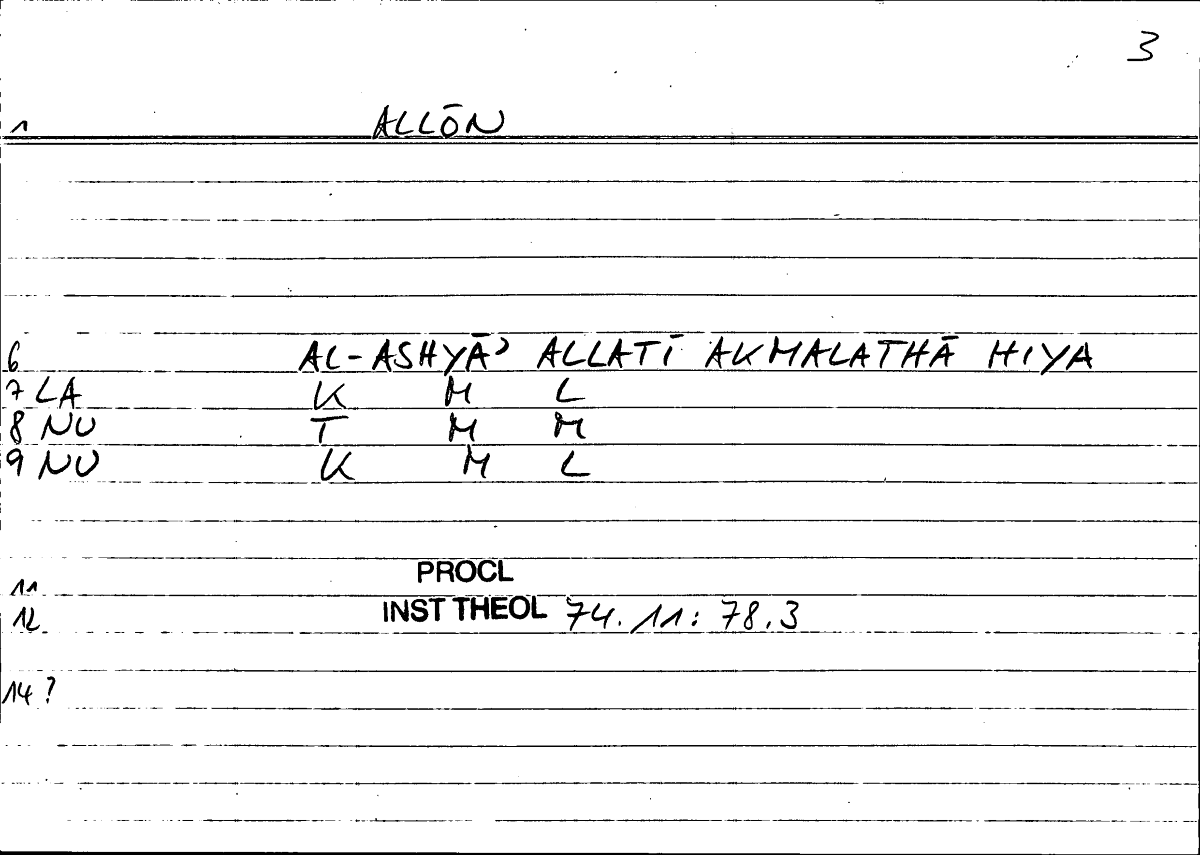 3
1 ALLŌN
6 AL-ASHYĀʾ ALLATĪ AKMALATHĀ HIYA
7 LA K M L
8 NU T M M
9 NU K M L
11 PROCL
12 INST THEOL 74.11: 78.3
14 ?